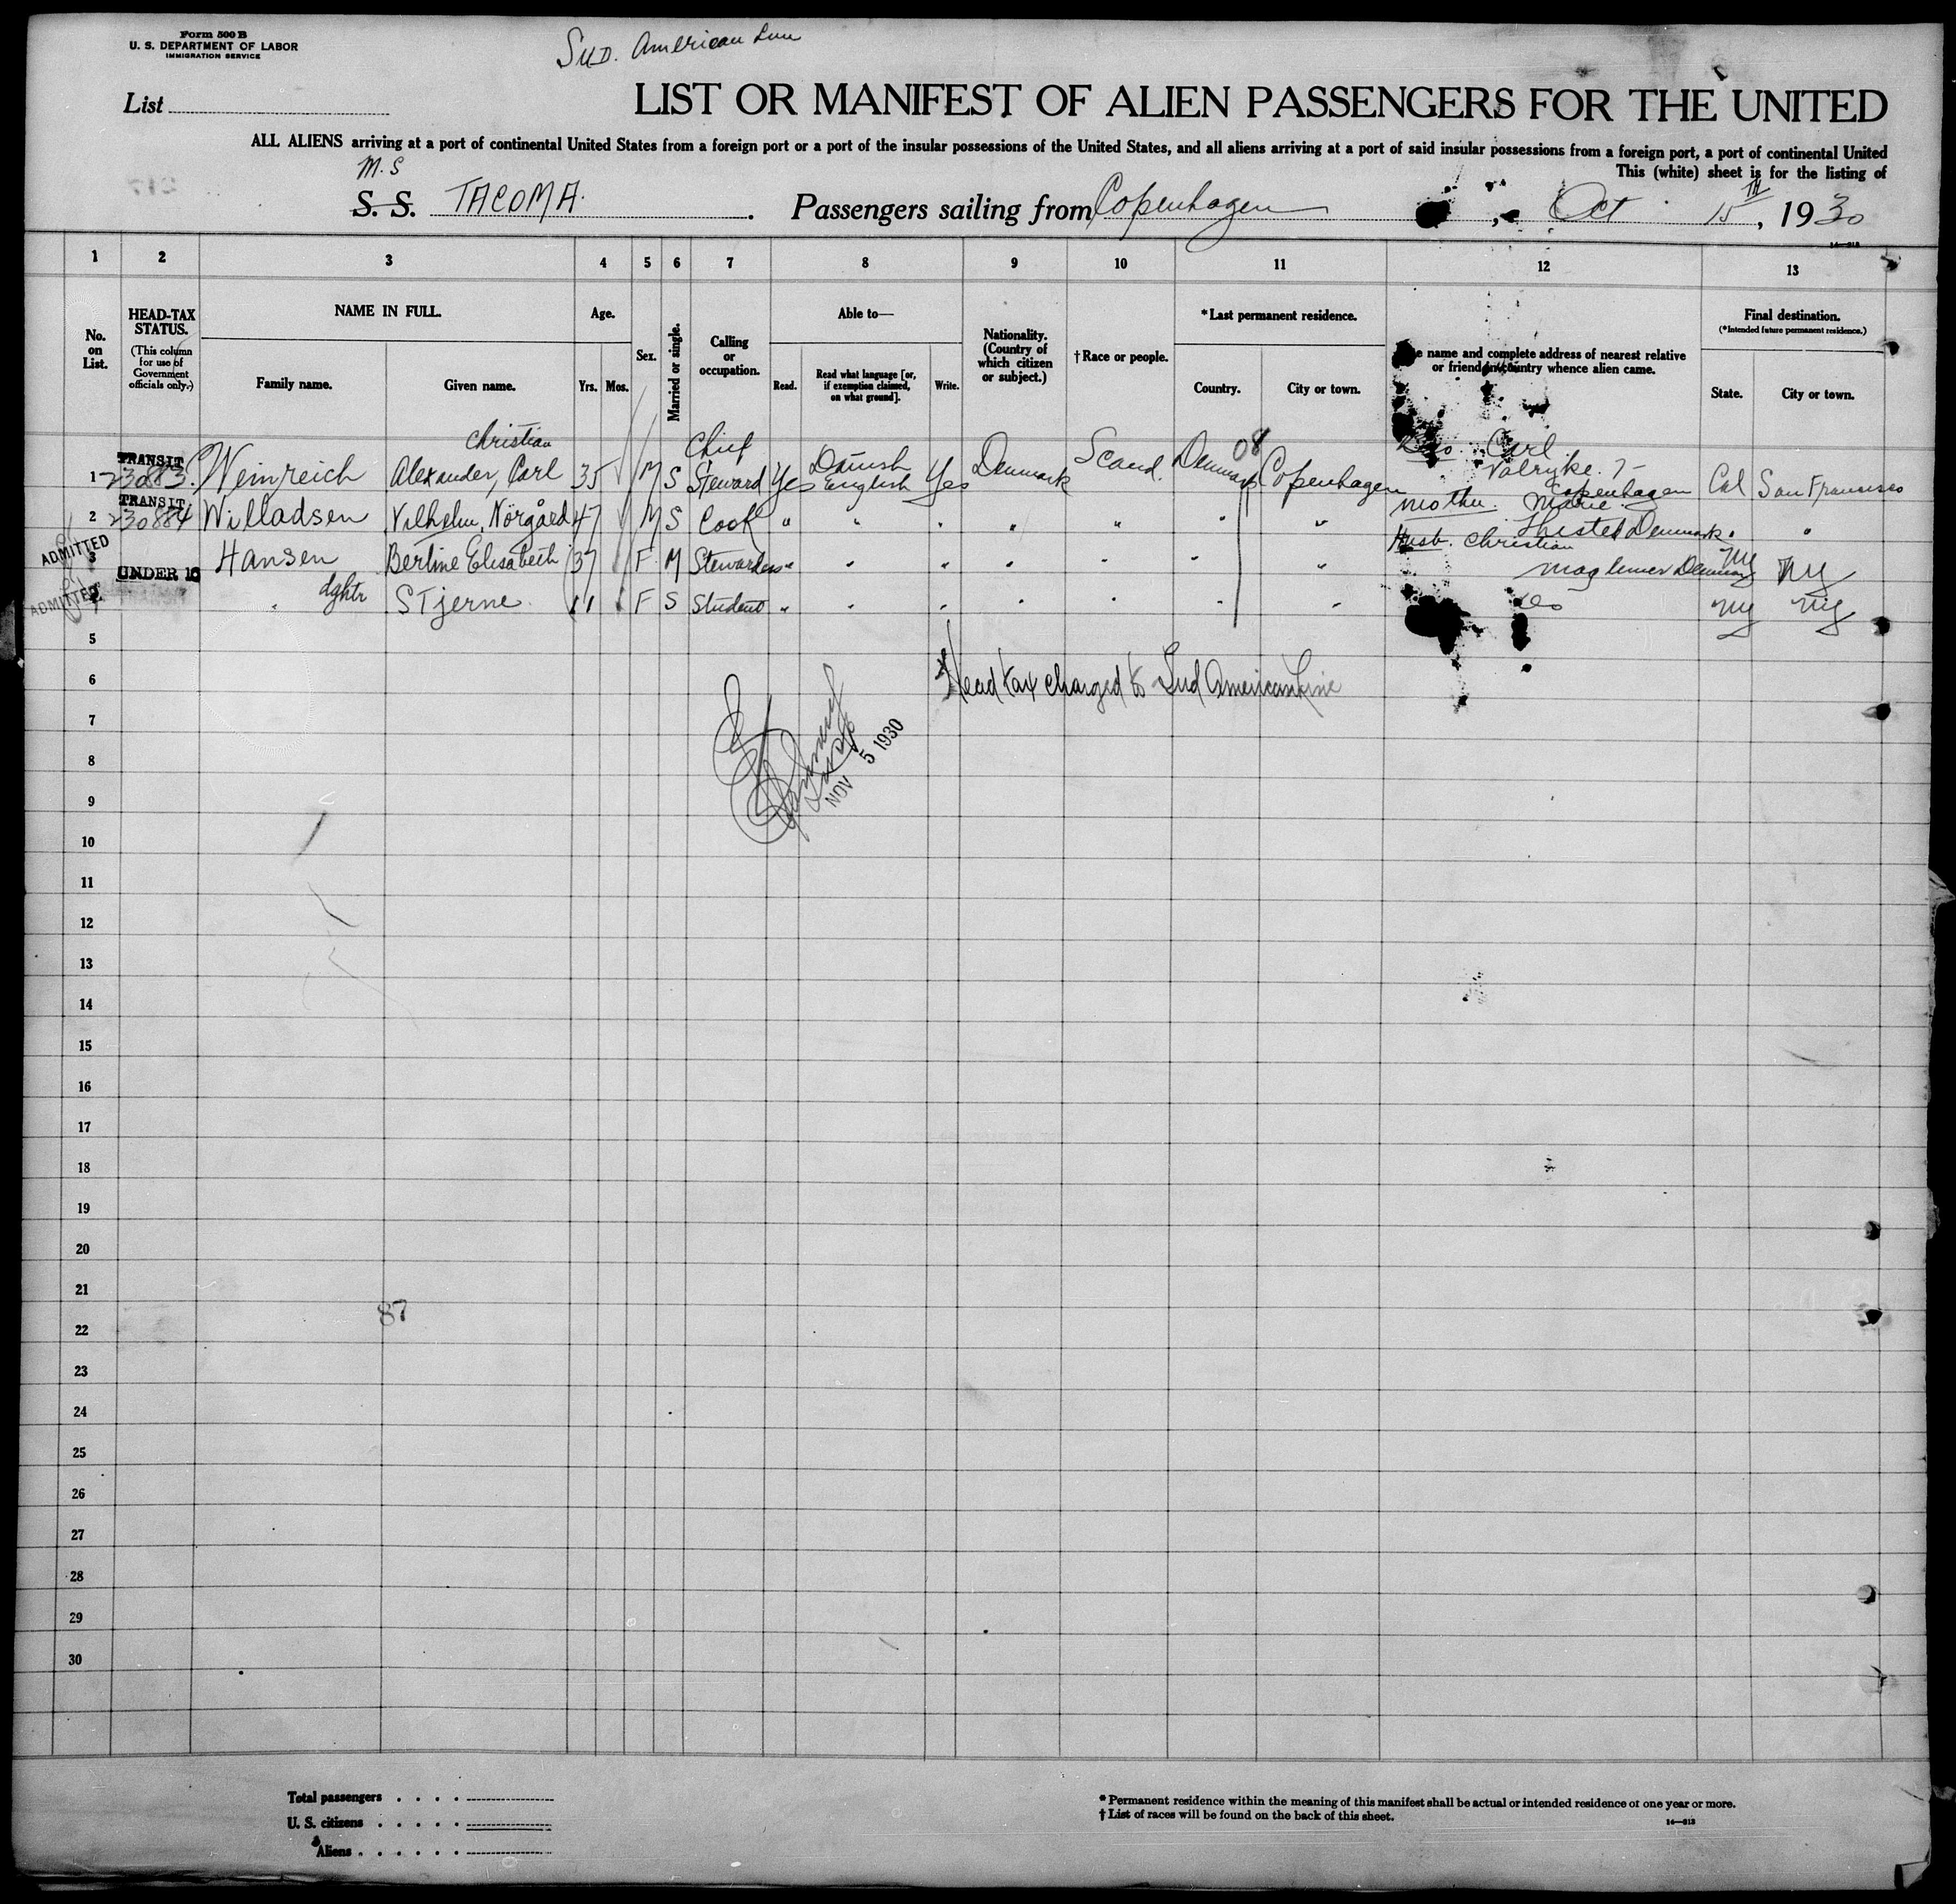 Form 500 B
U. S. DEPARTMENT OF LABOR
IMMIGRATION SERVICE
Sud. American Line
List
LIST OR MANIFEST OF ALIEN PASSENGERS FOR THE UNITED
ALL ALIENS arriving at a port of continental United States from a foreign port or a port of the insular possessions of the United States, and all aliens arriving at a port of said insular possessions from a foreign port, a port of continental United
This (white) sheet is for the listing of
M.S
S. S. TACOMA. Passengers sailing from Copenhagen, Oct 15TH, 1930
14—813
1 2 3 4 5 6 7 8 9 10 11 12 13
No. on List.
HEAD-TAX STATUS.
(This column for use of Government officials only.)
NAME IN FULL.
Family name. Given name.
Age.
Yrs. Mos.
Sex.
Married or single.
Calling or occupation.
Able to—
Read. Read what language [or, if exemption claimed, on what ground]. Write.
Nationality. (Country of which citizen or subject.)
†Race or people.
*Last permanent residence.
Country. City or town.
e name and complete address of nearest relative or friend in country whence alien came.
Final destination.
(*Intended future permanent residence.)
State. City or town.
Christian Chief Danish 08 Carl
TRANSIT
1 23083 Weinreich Alexander, Carl 35 M S Steward Yes English Yes Denmark Scand. Denmark Copenhagen Copenhagen Cal San Francisco
TRANSIT
2 230884 Willadsen Vilhelm, Nörgård 47 M S Cook " " " " " " " mother. Marie. Thisted Denmark " "
ADMITTED
3 Hansen Berline Elisabeth 37 F M Stewardess " " " " " " " Husb. Christian Denmark NY NY
UNDER 16
ADMITTED
4 " dghtr Stjerne 11 F S Student " " " " " " " do NY NY
5
6 Head tax charged to Sud American Line
7
NOV 5 1930
8
9
10
11
12
13
14
15
16
17
18
19
20
21
87
22
23
24
25
26
27
28
29
30
Total passengers
U. S. citizens
Aliens
* Permanent residence within the meaning of this manifest shall be actual or intended residence of one year or more.
† List of races will be found on the back of this sheet.
14—813